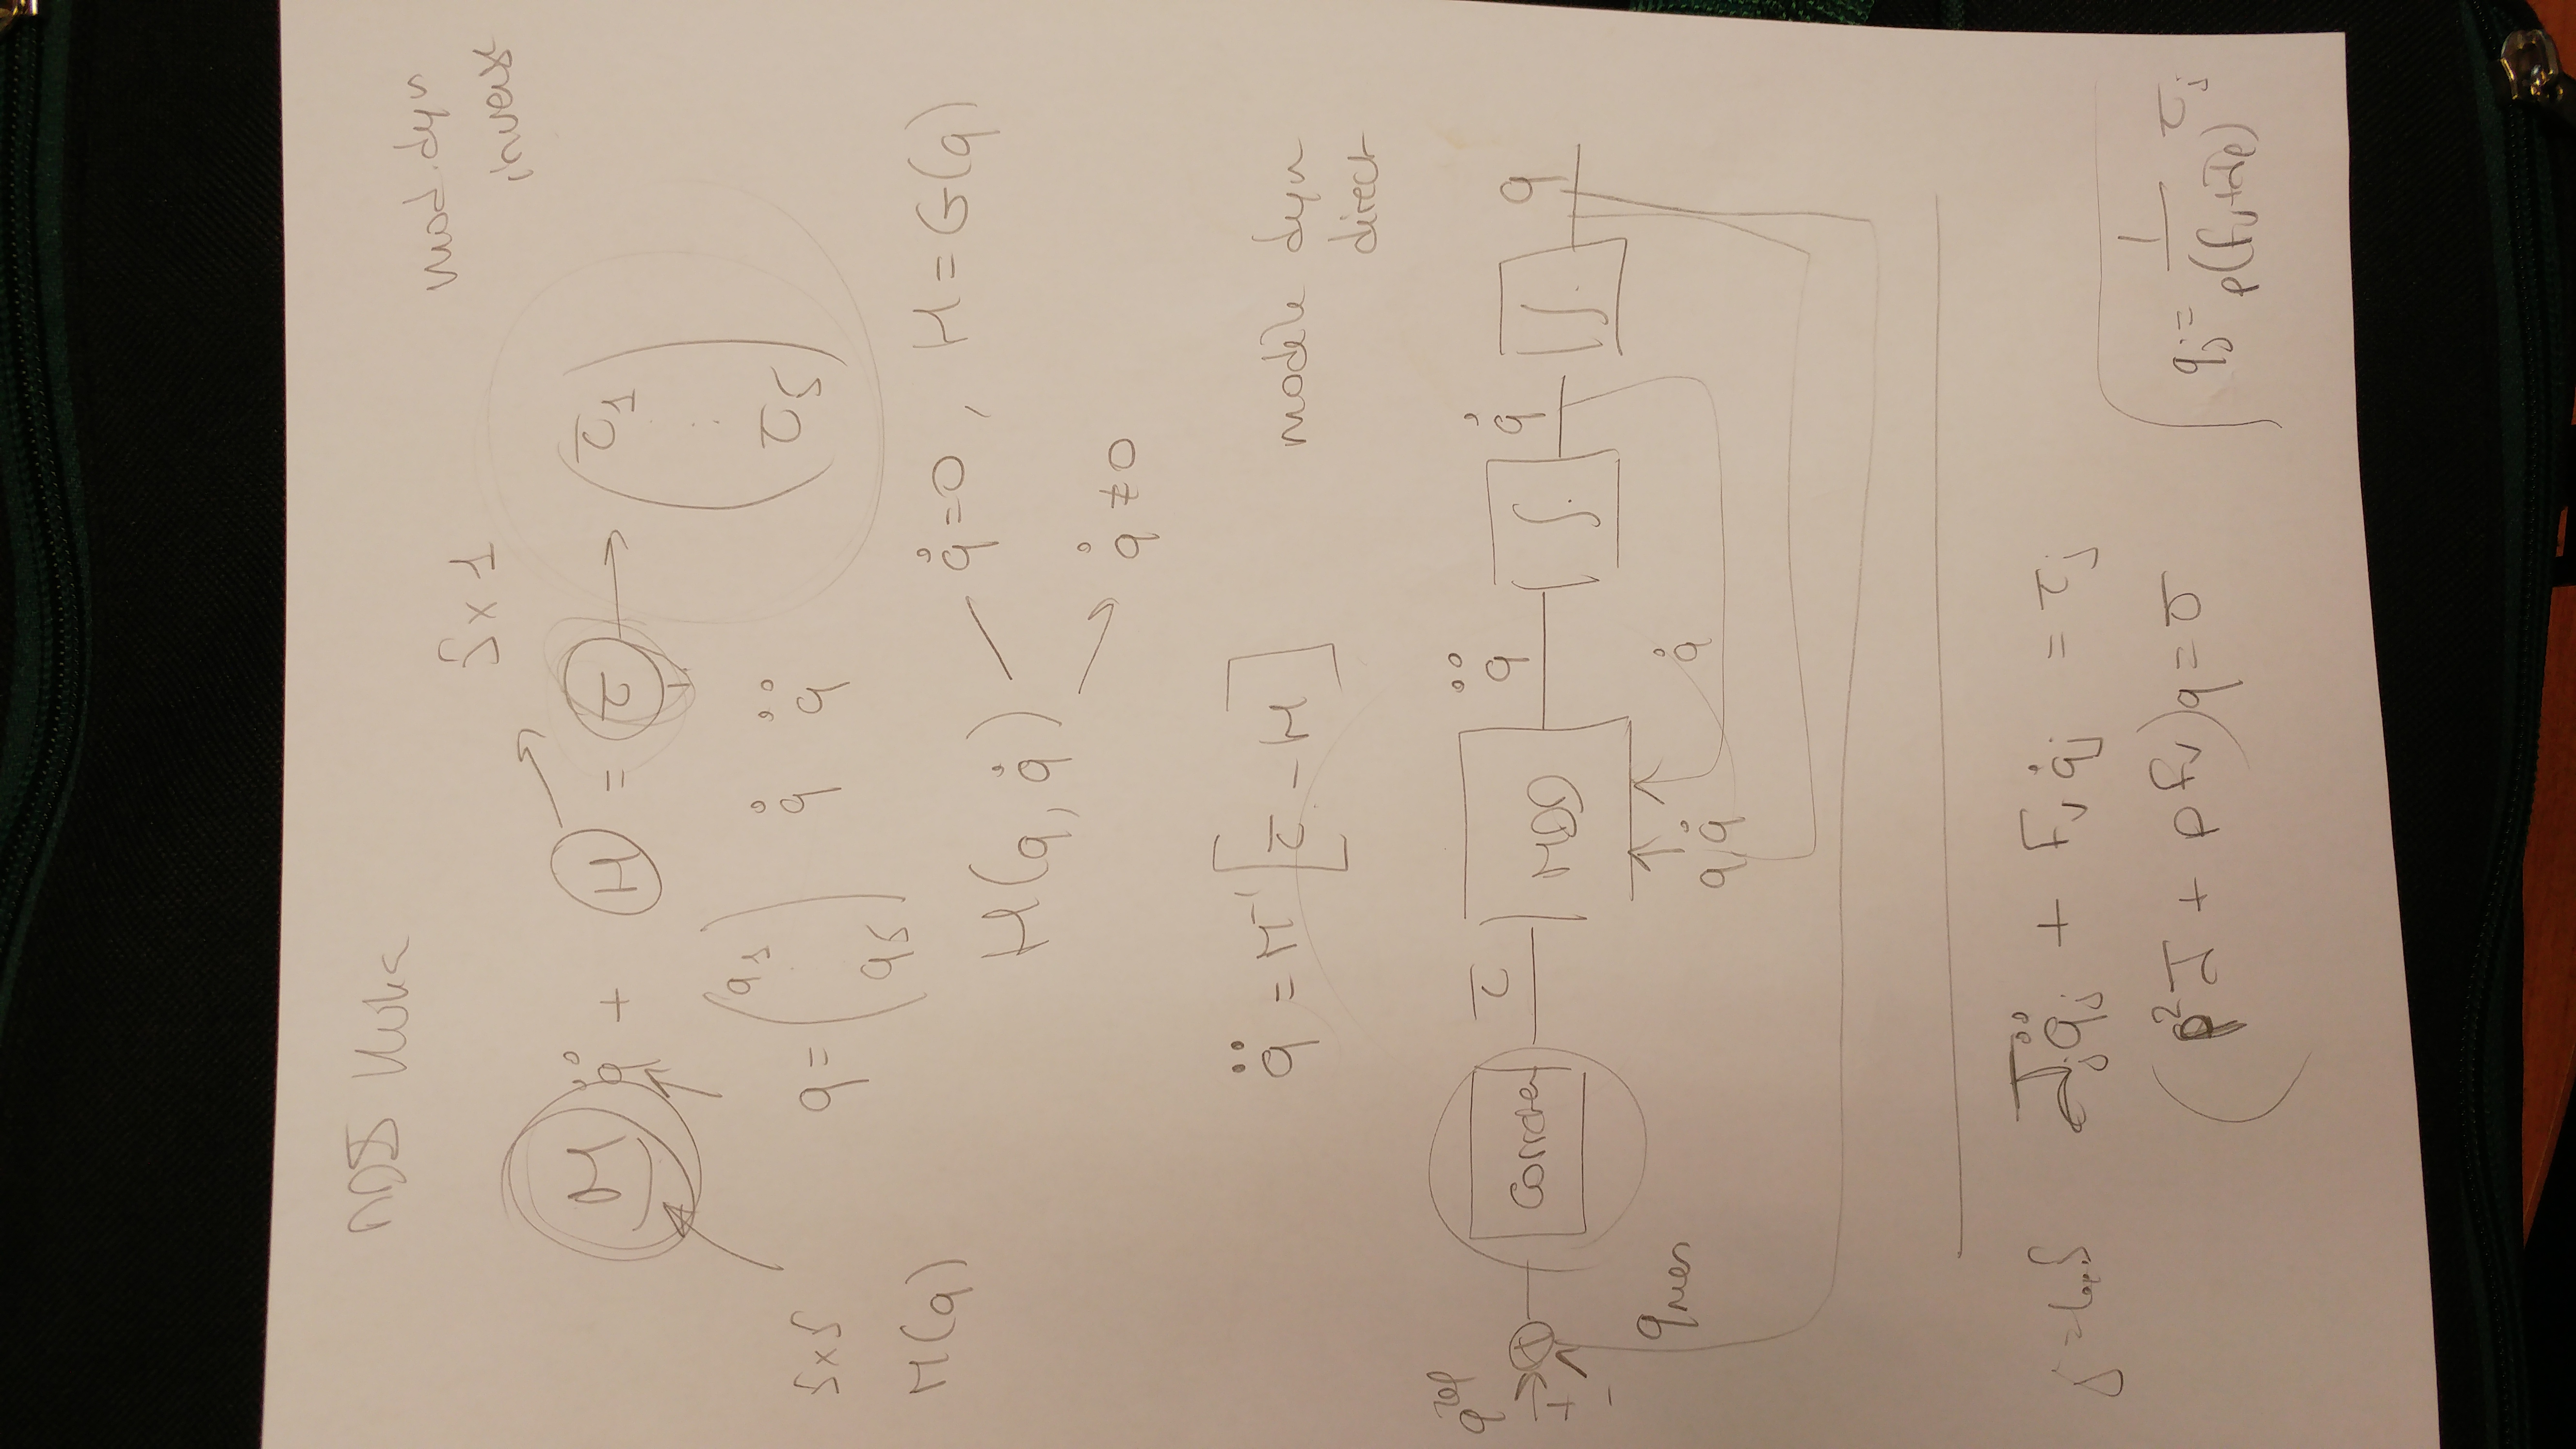 Kuka
mod. dyn
inverse
5 x 1
M q̈ + H = τ → (τ1 . . τ5)
5x5
M(q)
q = (q1 . . q5) q̇ q̈
H(q, q̇)
q̇ = 0, H = G(q)
q̇ ≠ 0
q̈ = M⁻¹ [τ - H]
modèle dyn
direct
+
-
τ
MDD
q̈
∫
q̇
∫
q
q mes
q, q̇
q̇
j = 1...5
Jj q̈j + Fv q̇j = τj
(p² J + p Fv) q = τ
qj = 1 / p(Fv + Jp) τj